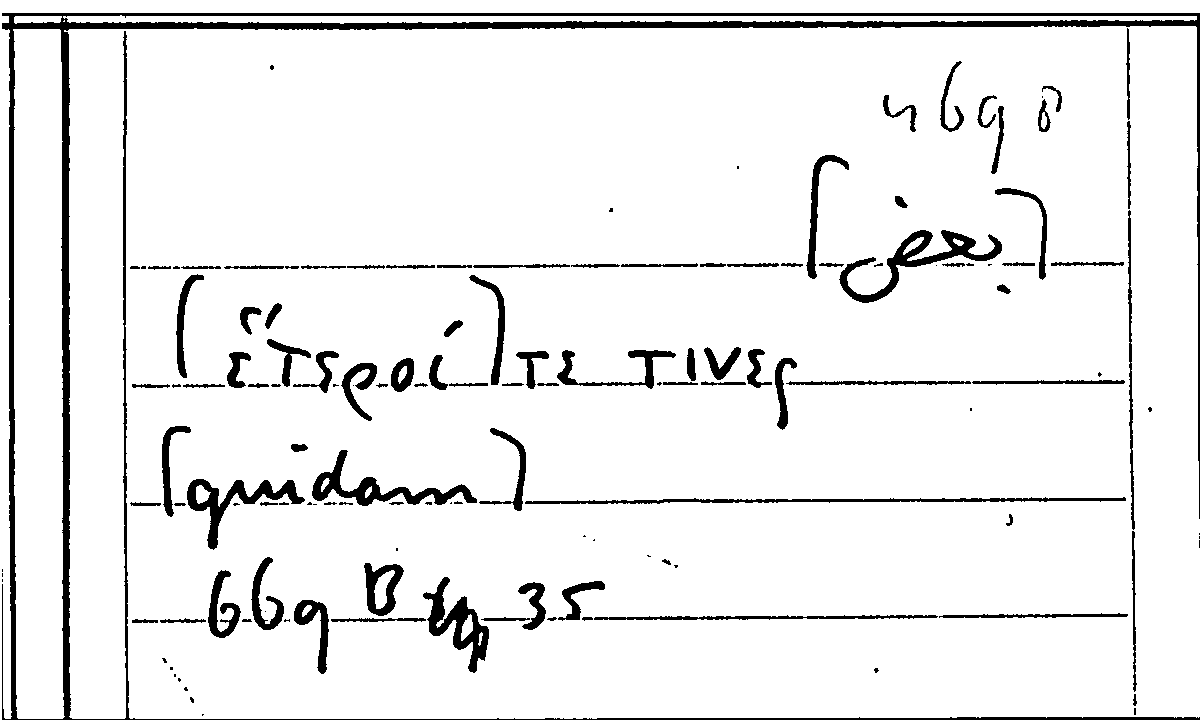 [بعض]
[ἕτεροί] τε τινες
[quidam]
669 B 35